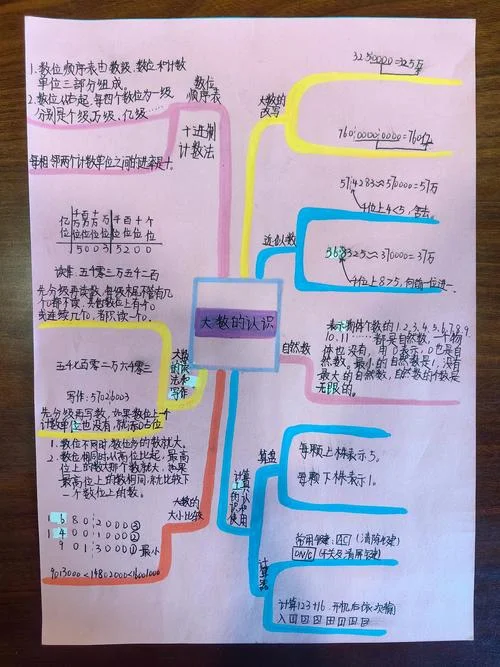 大数的认识
数位
顺序表
1.数位顺序表由数级、数位和计数
单位三部分组成。
2.数位从右起,每四个数位为一级
分别是个级万级、亿级……
十进制
计数法
每相邻两个计数单位之间的进率是十。
亿 千 百 十 万 千 百 十 个
位 万 万 万 位 位 位 位 位
位 位 位
5 0 0 3 5 2 0 0
读作:五千零三万五千二百
先分级再读数,每级末尾不管有几
个0都不读,其他数位上有个0
或连续几个0,都只读一个0。
大数
的读
法和
写作
五千七百零二万六千零三
写作:57026003
先分级再写数,如果数位上一个
计数单位也没有,就写0占位
大数的
大小比较
1.数位不同时,数位多的数就大。
2.数位相同时从高位比起,最高
位上的数大那个数就大,如果
最高位上的数相同,就比较下
一个数位上的数。
1 6 8 0 2 0 0 0 ③
1 4 8 0 1 0 0 0 ②
9 0 1 3 0 0 0 ① 最小
大数的
改写
3250000=325万
760|0000|0000=760亿
近似数
574283≈570000=57万
千位上4<5,舍去。
368325≈370000=37万
千位上8>5,向前一位进一
自然数
表示物体个数的1、2、3、4、5、6、7、8、9、
10、11……都是自然数,一个物
体也没有,用0表示,0也是自
然数。最小的自然数是0,没有
最大的自然数,自然数的个数是
无限的。
计算工具
的认识和
使用
算盘
每颗上株表示5。
每颗下株表示1。
计算器
常用键:AC (清除键)
ON/C (开关及清屏键)
计算123+16 开机后依次输